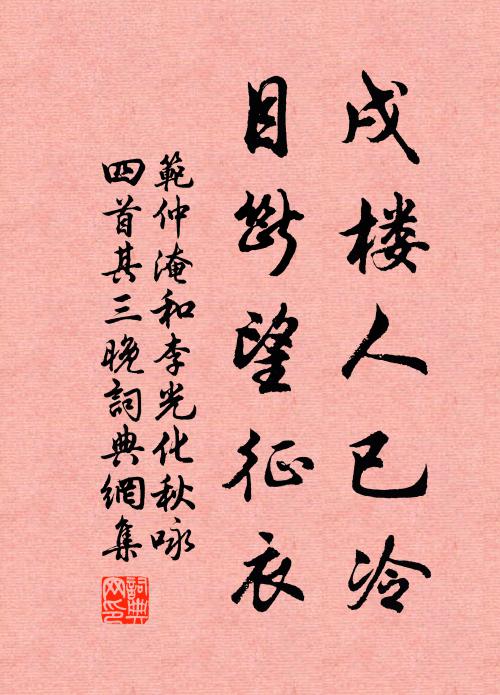 戍楼人已冷
目断望征衣
範仲淹和李光化秋咏
四首其三晚詞典網集
詞典网印